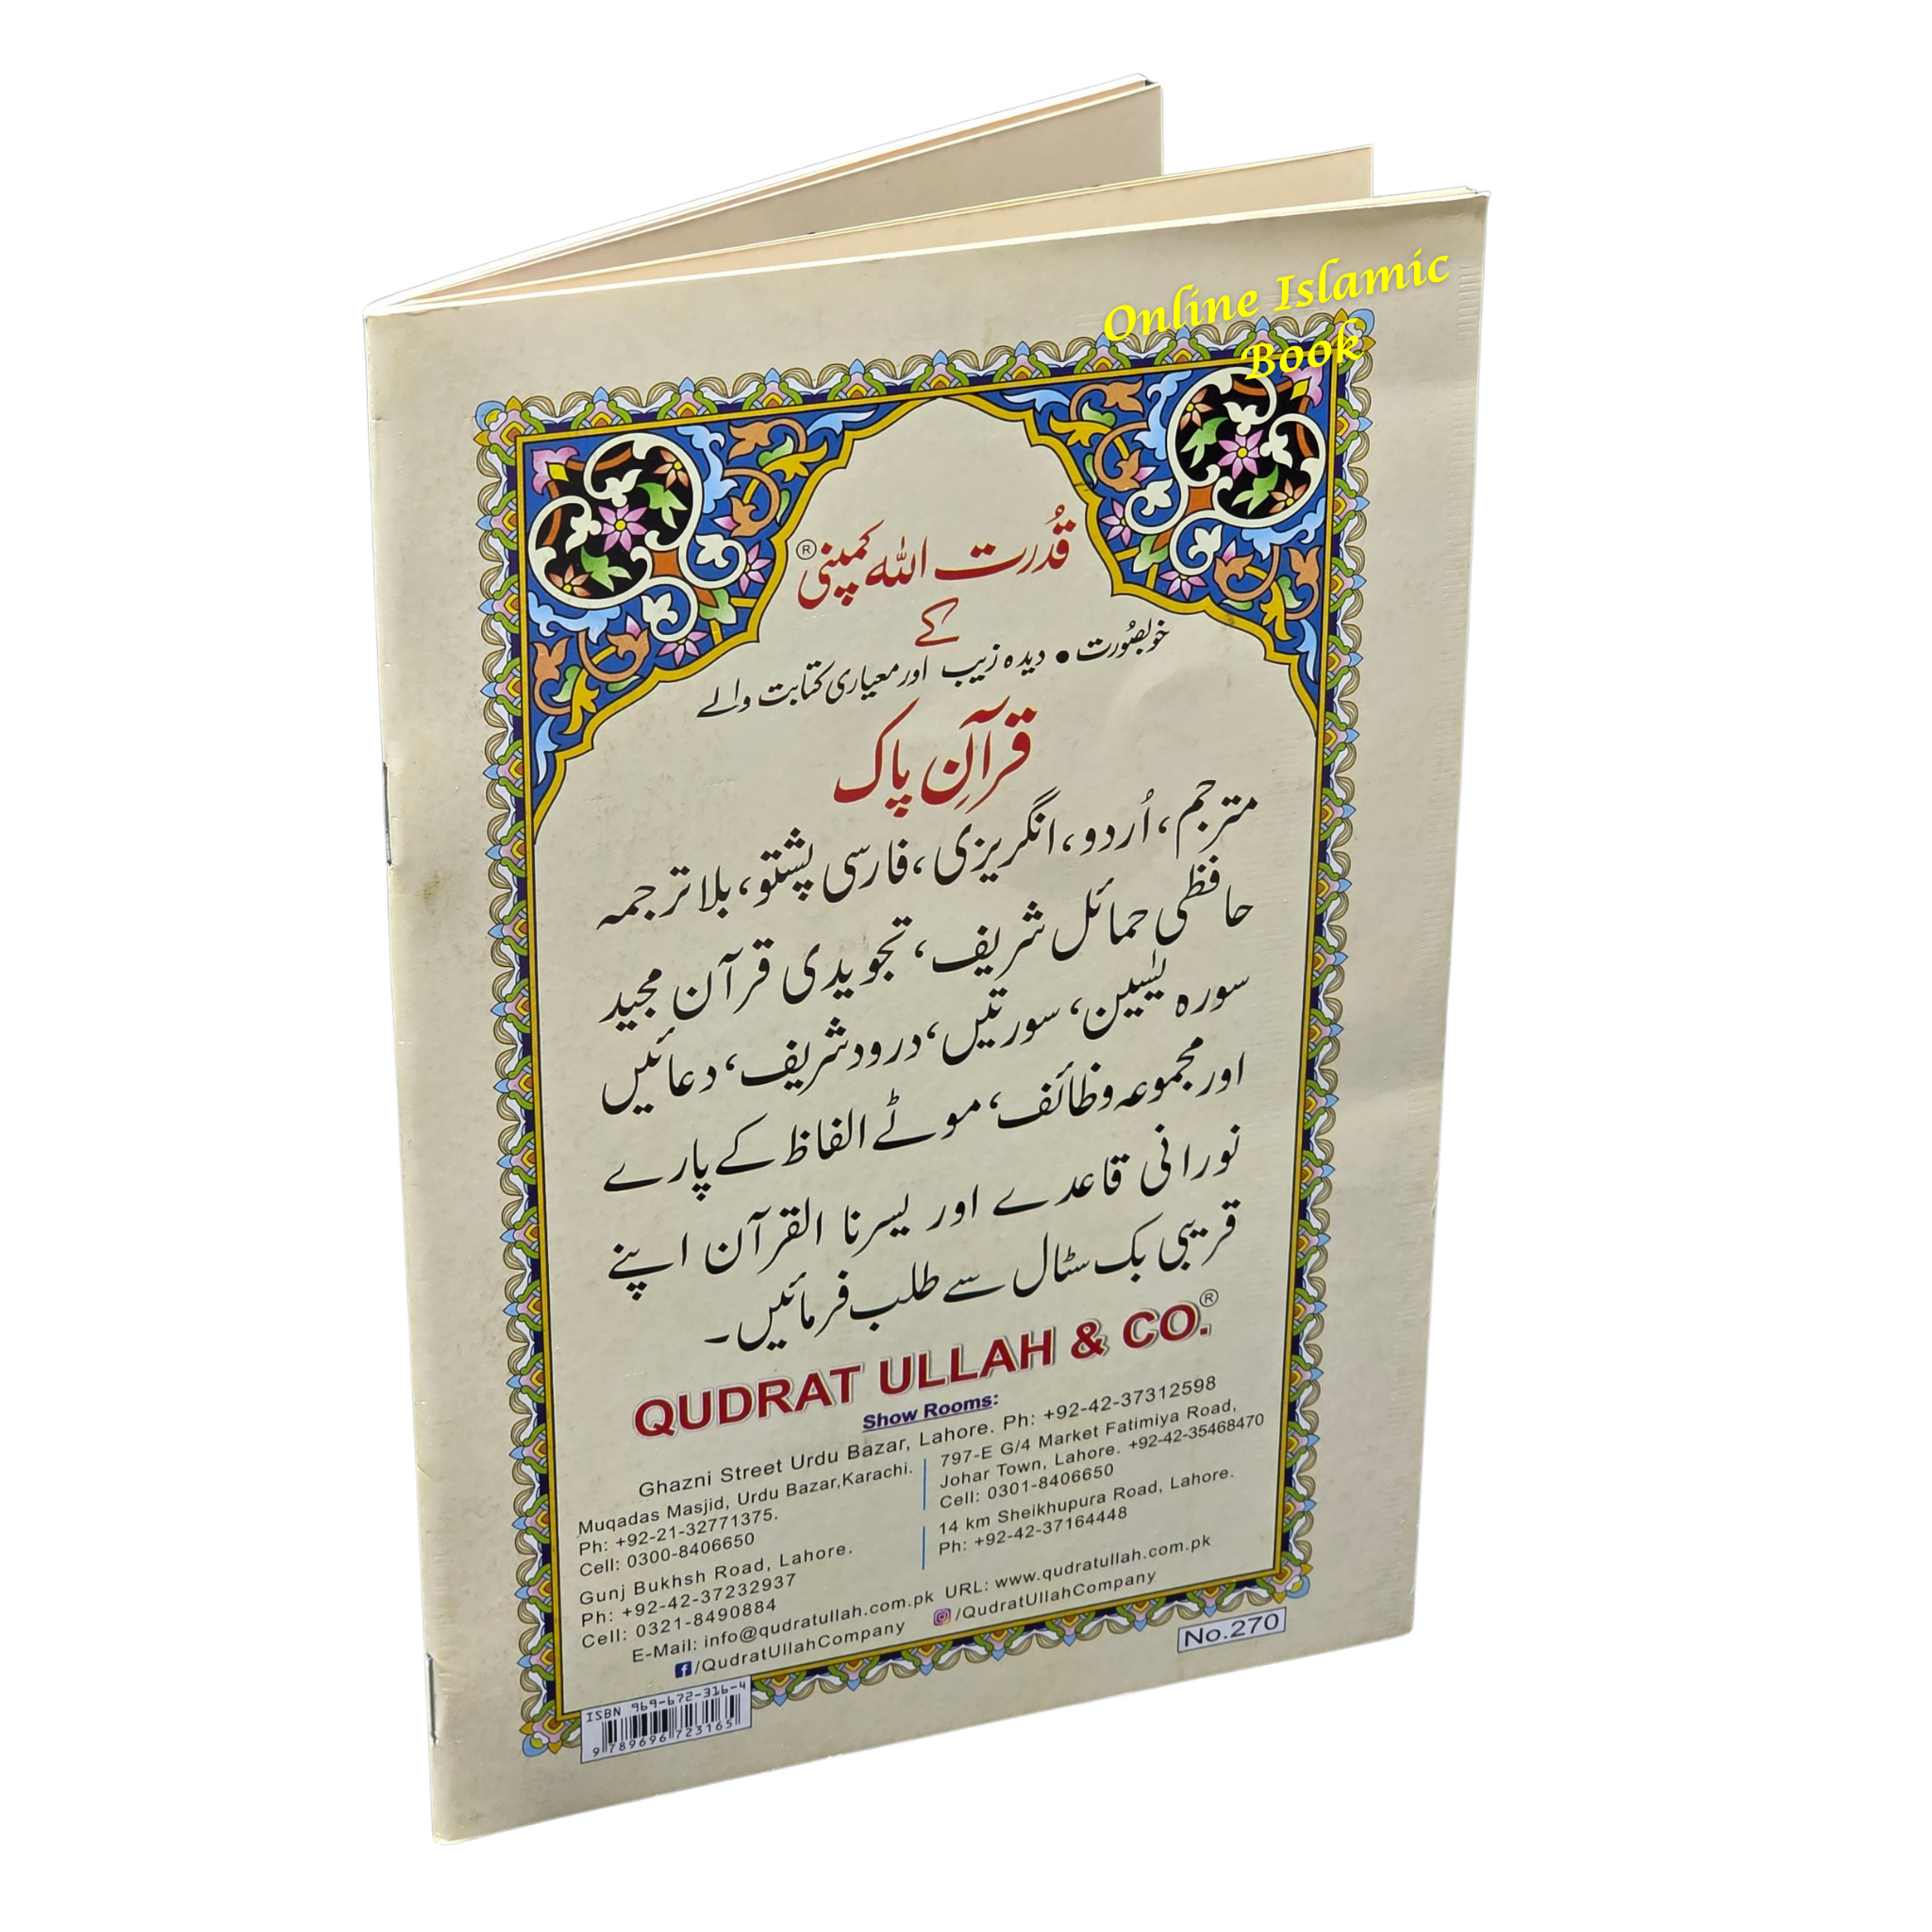 Online Islamic
Book
قُدرت اللہ کمپنی®
کے
خوبصُورت • دیدہ زیب اور معیاری کتابت والے
قرآنِ پاک
مترجم، اُردو، انگریزی، فارسی پشتو، بلا ترجمہ
حافظی حمائل شریف، تجویدی قرآن مجید
سورہ یٰسین، سورتیں، درود شریف، دعائیں
اور مجموعہ وظائف، موٹے الفاظ کے پارے
نورانی قاعدے اور یسرنا القرآن اپنے
قریبی بک سٹال سے طلب فرمائیں۔
QUDRAT ULLAH & CO.®
Show Rooms:
Ghazni Street Urdu Bazar, Lahore. Ph: +92-42-37312598
Muqadas Masjid, Urdu Bazar,Karachi.
Ph: +92-21-32771375.
Cell: 0300-8406650
797-E G/4 Market Fatimiya Road,
Johar Town, Lahore. +92-42-35468470
Cell: 0301-8406650
Gunj Bukhsh Road, Lahore.
Ph: +92-42-37232937
Cell: 0321-8490884
14 km Sheikhupura Road, Lahore.
Ph: +92-42-37164448
E-Mail: info@qudratullah.com.pk URL: www.qudratullah.com.pk
/QudratUllahCompany /QudratUllahCompany
No.270
ISBN 969-672-316-4
9 789696 723165